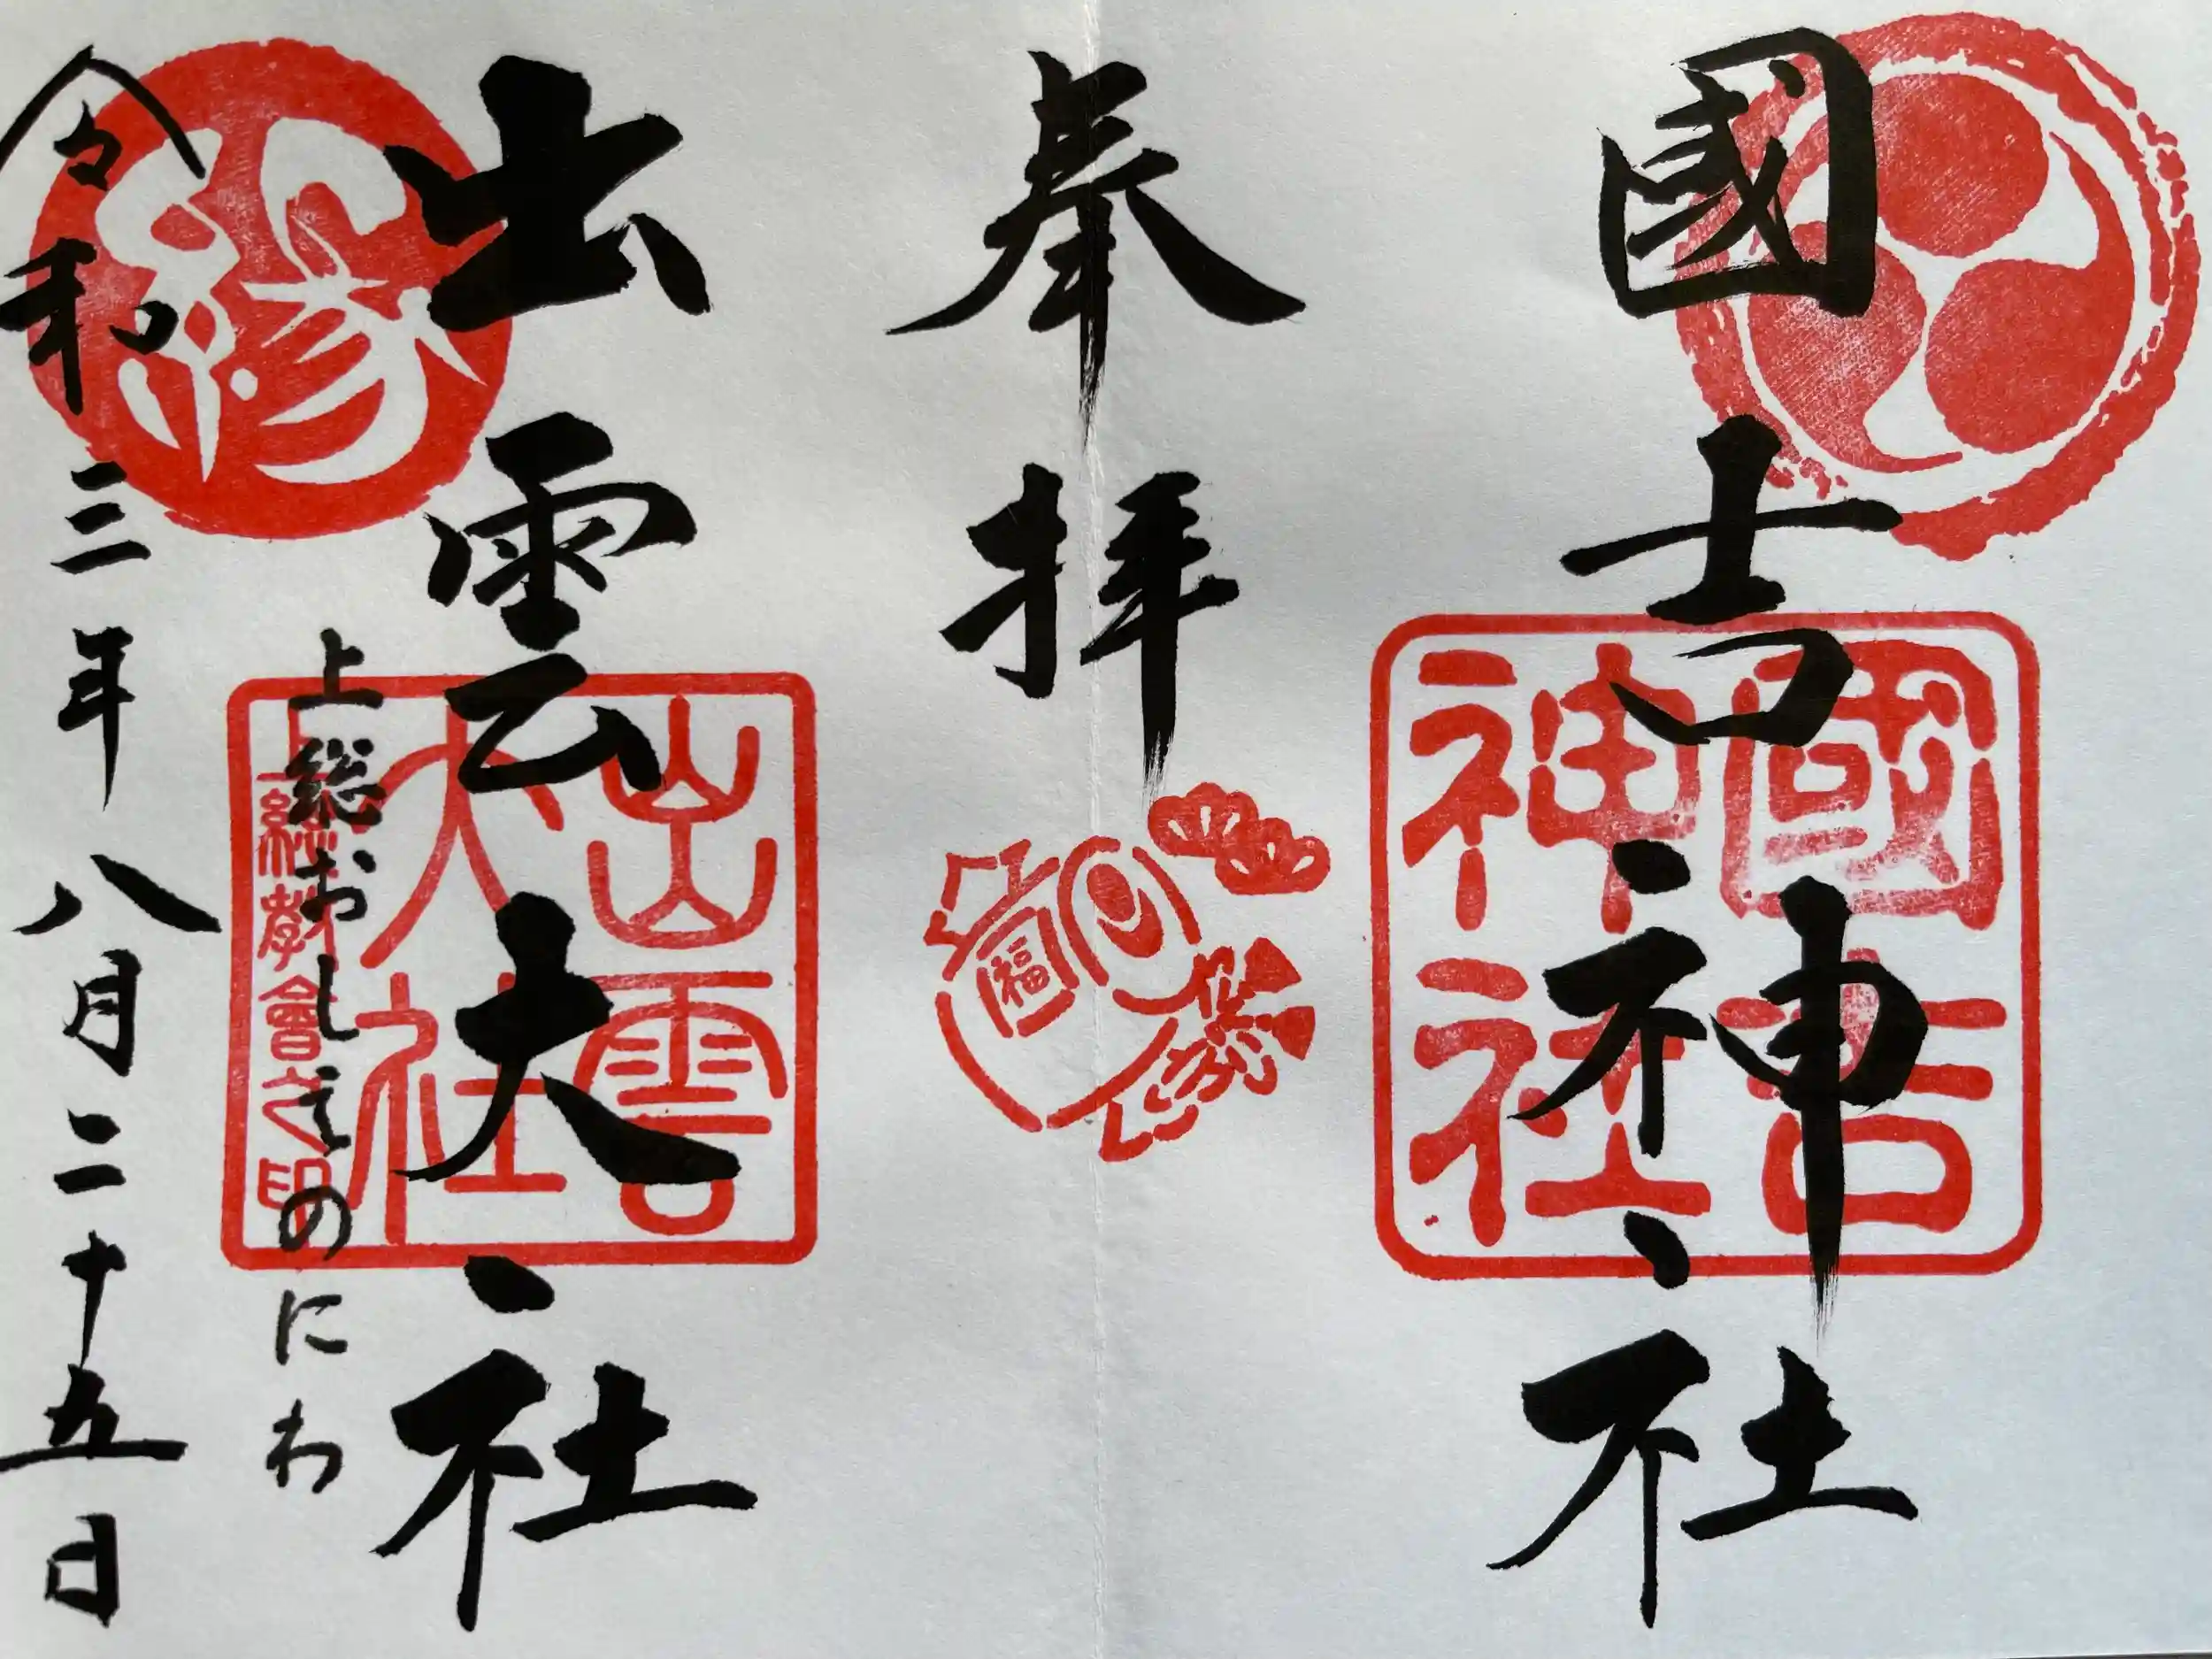 國吉神社
國吉
神社
奉拝
福
出雲大社
出雲
大社
上総教會之印
縁
上総おしゑのにわ
令和三年八月二十五日